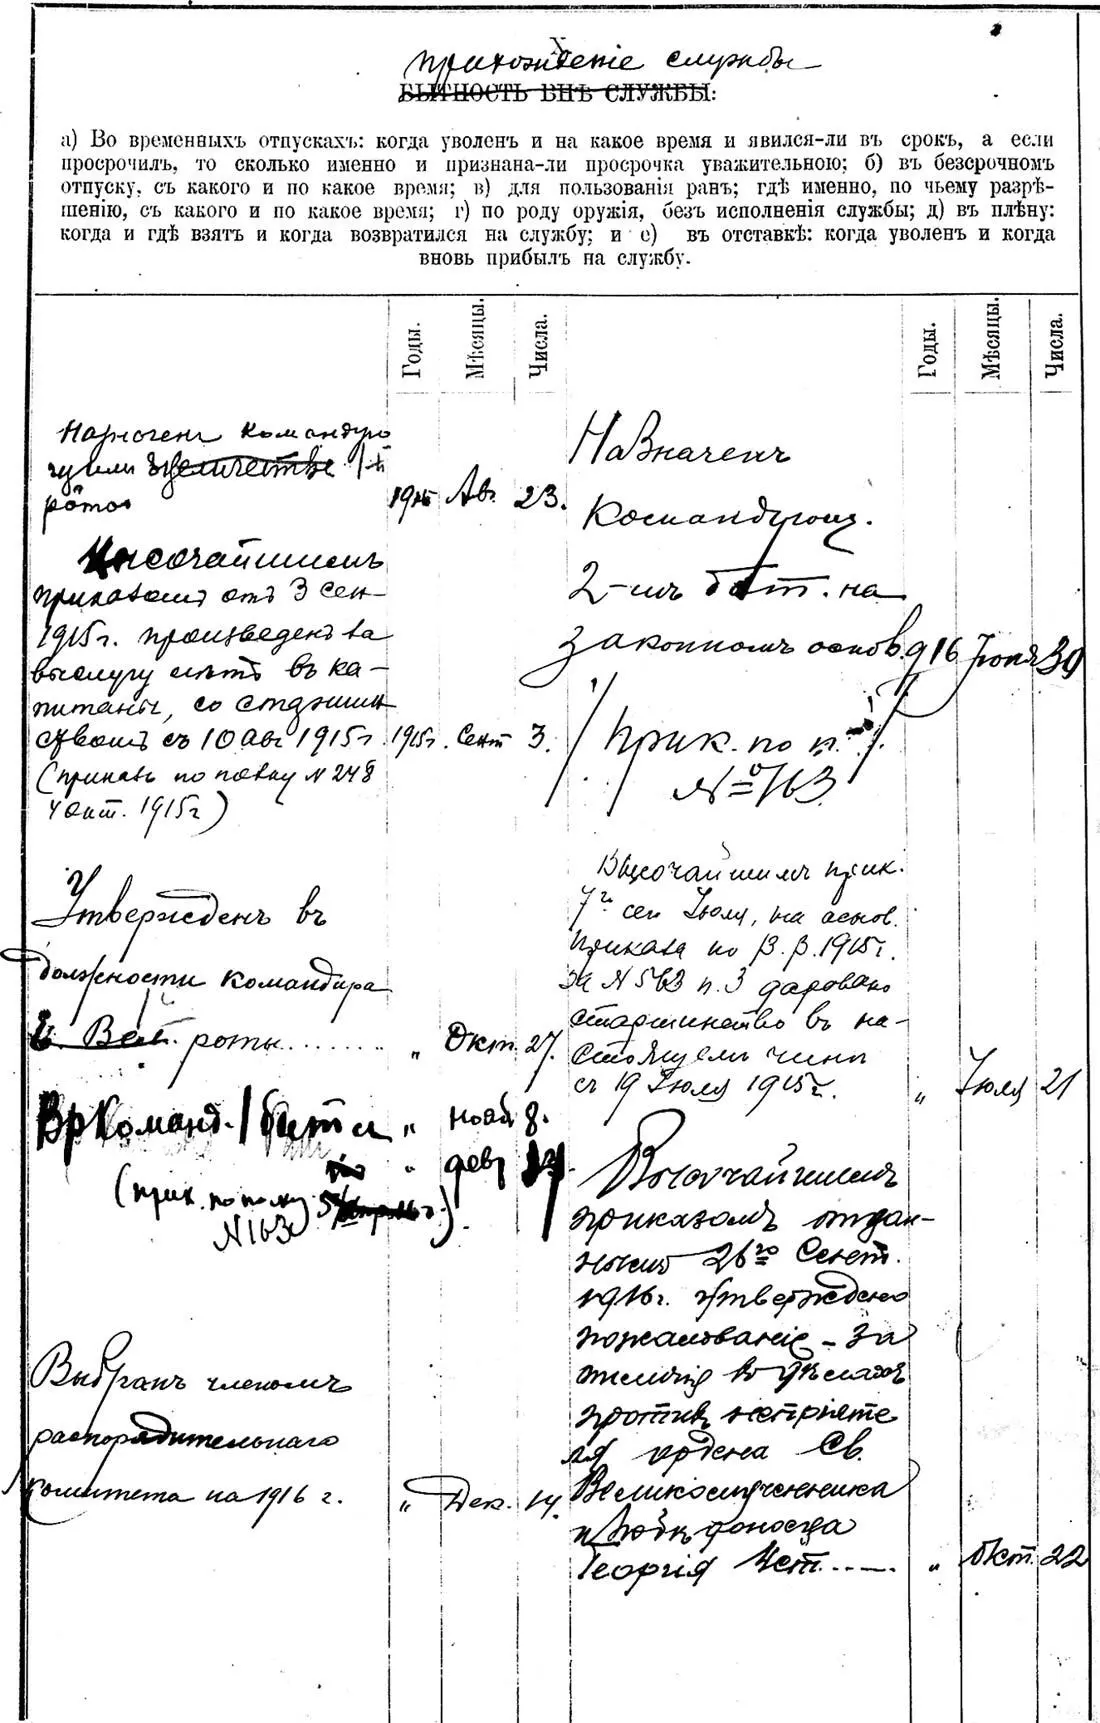 X
прихожденіе службы
БЫТНОСТЬ ВНѢ СЛУЖБЫ:
а) Во временныхъ отпускахъ: когда уволенъ и на какое время и явился-ли въ срокъ, а если
просрочилъ, то сколько именно и признана-ли просрочка уважительною; б) въ безсрочномъ
отпуску, съ какого и по какое время; в) для пользованія ранъ; гдѣ именно, по чьему разрѣ-
шенію, съ какого и по какое время; г) по роду оружія, безъ исполненія службы; д) въ плѣну:
когда и гдѣ взятъ и когда возвратился на службу; и е) въ отставкѣ: когда уволенъ и когда
вновь прибылъ на службу.
Годы.
Мѣсяцы.
Числа.
Годы.
Мѣсяцы.
Числа.
Назначенъ командую
щимъ
ротою 1915 Авг. 23.
Высочайшимъ
приказомъ отъ 3 сен-
1915г. произведенъ за
выслугу лѣтъ въ ка-
питаны, со старшин
ствомъ съ 10 авг 1915г. 1915г. Сент 3.
(приказъ по полку № 248
4 окт. 1915г)
Утвержденъ въ
должности командира
роты........ „ Окт. 27.
Вр Команд. 1 бат-м „ нояб 8.
„ февр
(прик. по полку
№ 163
Выбранъ членомъ
распорядительнаго
комитета на 1916 г. „ Дек. 14.
Назначенъ
Командующ.
2-мъ бат. на
законномъ основ. 916 Іюня 30
/ Прик. по п.
№ 163
Высочайшимъ прик.
7го сего Іюля, на основ.
приказа по В. В. 1915г.
за № 563 п. 3 даровано
старшинство въ на-
стоящемъ чинѣ
съ 19 Іюля 1915г. „ Іюля 21
Высочайшимъ
приказомъ отдан-
нымъ 26го Сент.
1916г. утверждено
пожалованіе - за
отличія въ дѣлахъ
противъ непріяте
ля ордена Св.
Великомученника
и Побѣдоносца
Георгія 4 ст...... „ Окт. 22